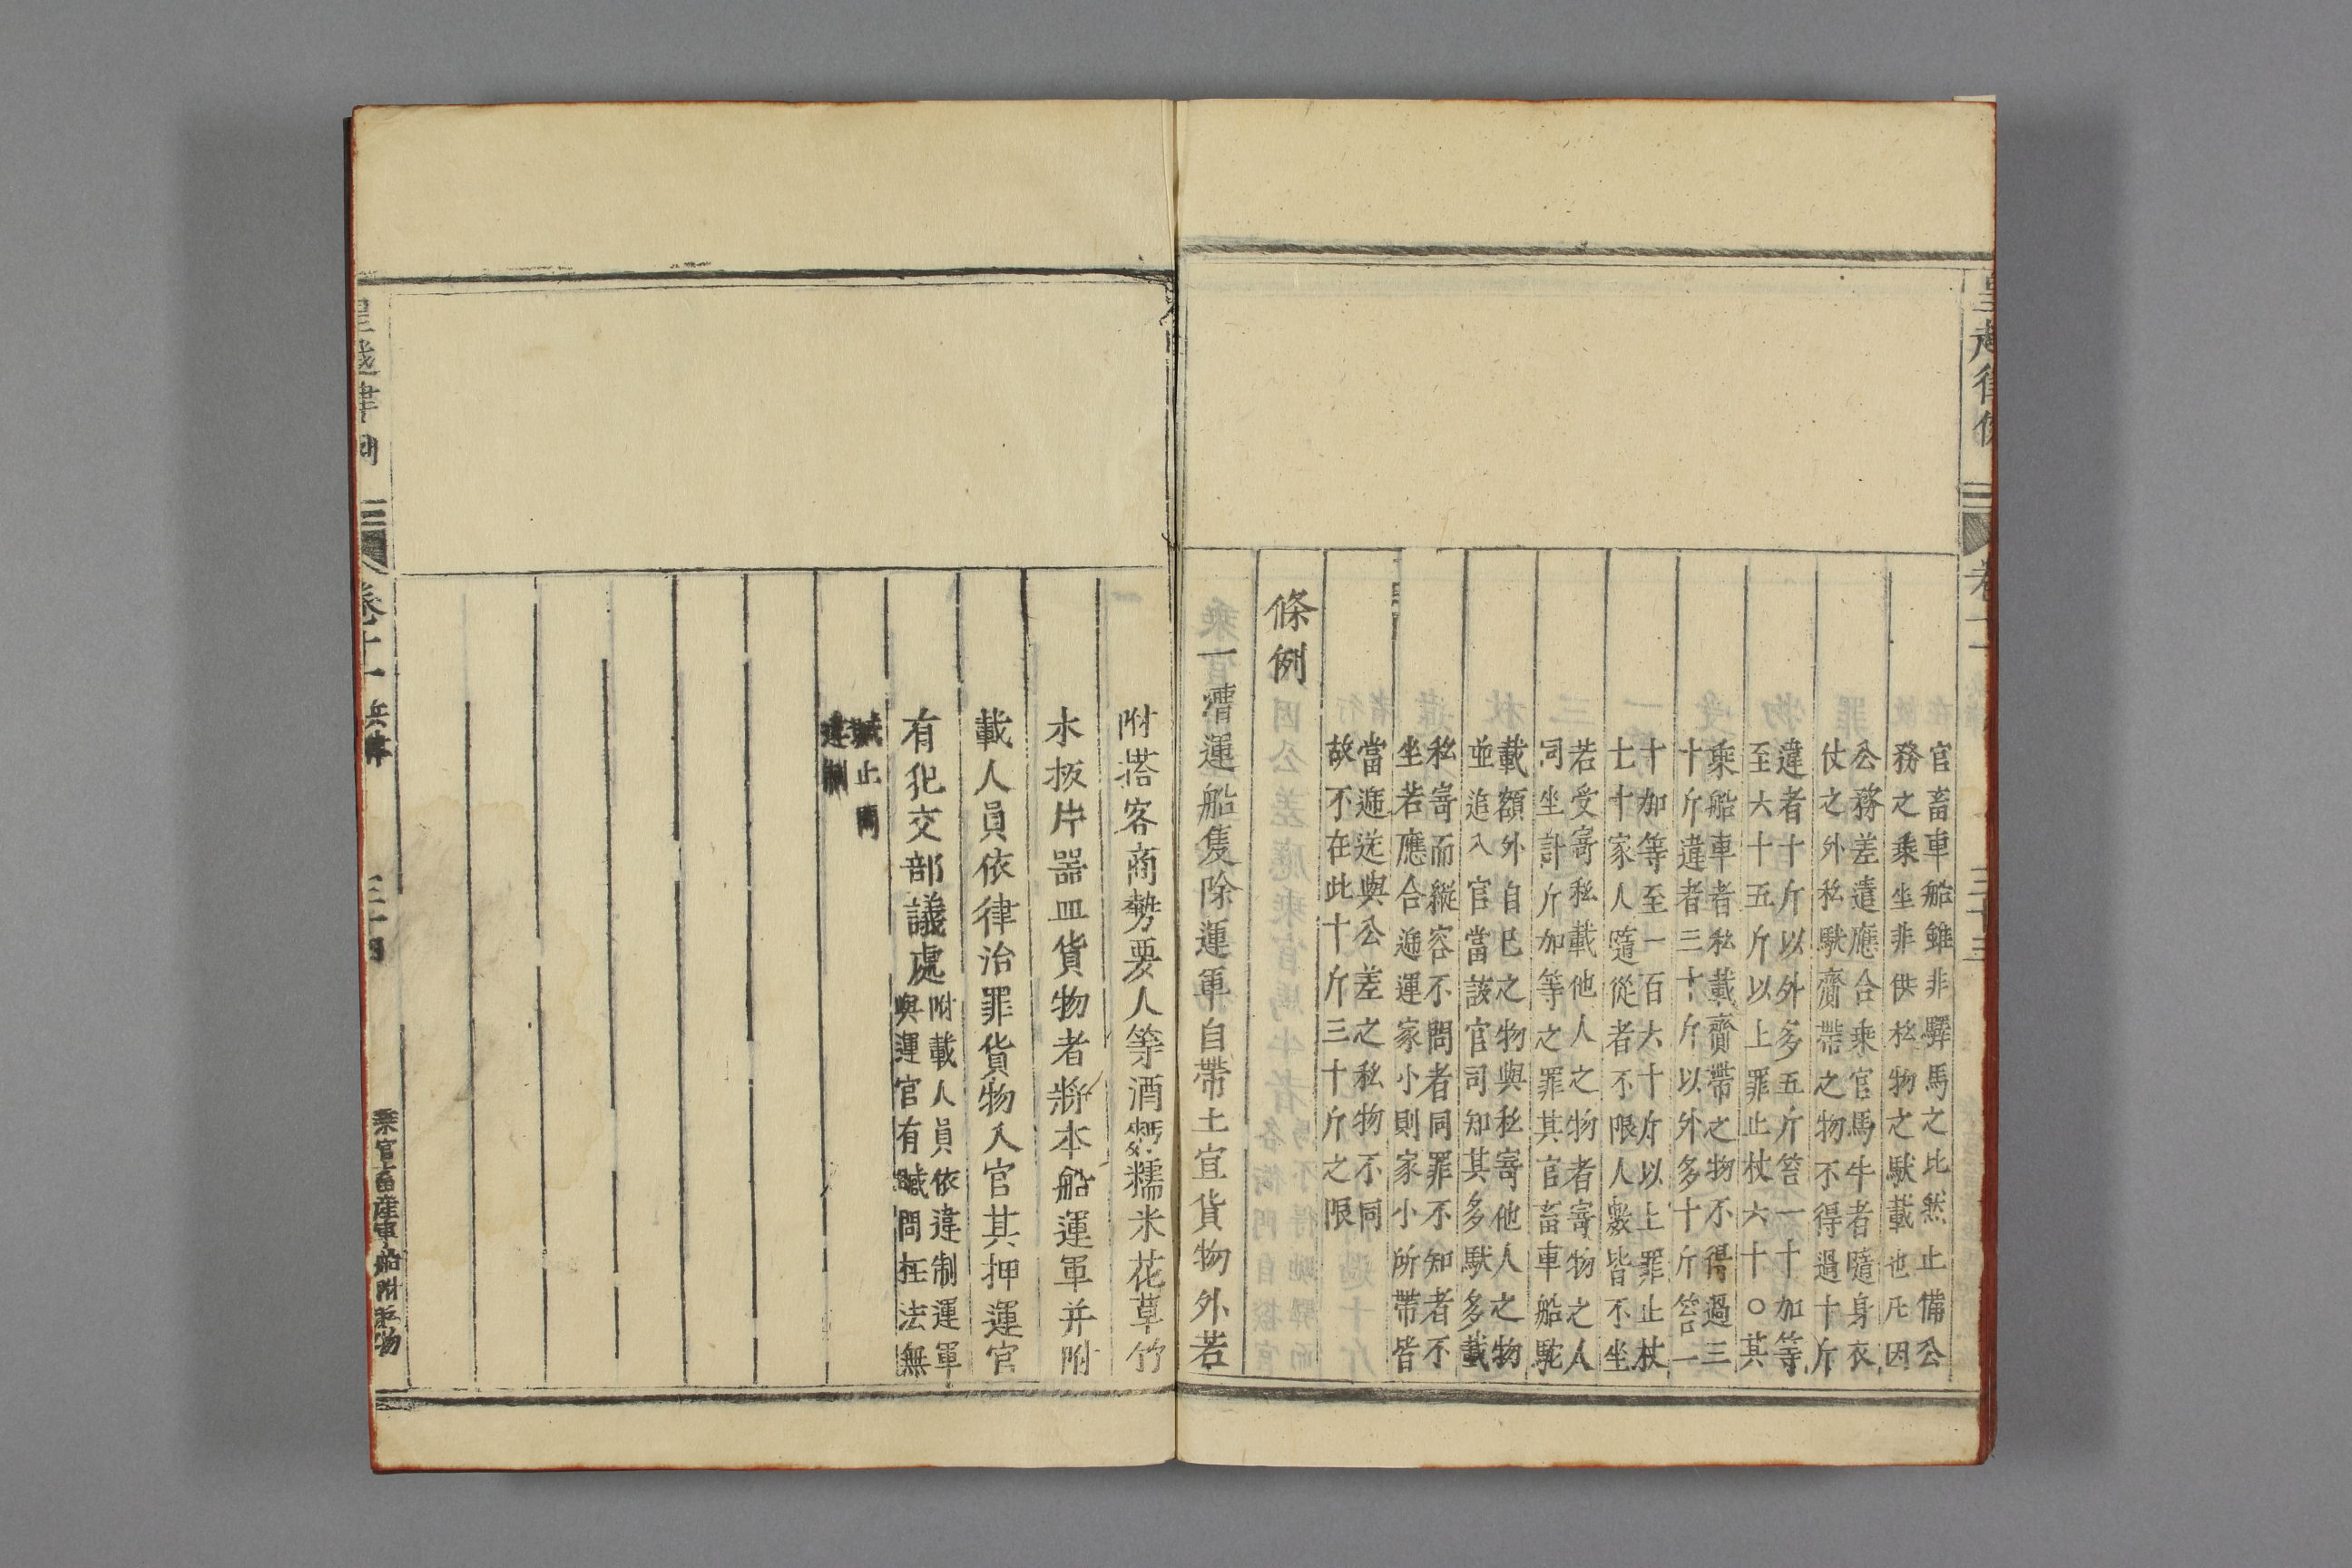 官畜車船雖非驛馬之比然止備公
務之乘坐非供私物之馱載也凡因
公務差遣應合乘官馬牛者隨身衣
仗之外私馱齎帶之物不得過十斤
違者十斤以外多五斤笞一十加等
至六十五斤以上罪止杖六十○其
乘船車者私載齎帶之物不得過三
十斤違者三十斤以外多十斤笞一
十加等至一百六十斤以上罪止杖
七十家人隨從者不限人數皆不坐
若受寄私載他人之物者寄物之人
同坐計斤加等之罪其官畜車船駝
載額外自己之物與私寄他人之物
並追入官當該官司知其多馱多載
私寄而縱容不問者同罪不知者不
坐若應合遞運家小則家小所帶皆
當遞送與公差之私物不同
故不在此十斤三十斤之限
條例
一漕運船隻除運軍自帶土宜貨物外若
附搭客商勢要人等酒麫糯米花草竹
木板片器皿貨物者將本船運軍并附
載人員依律治罪貨物入官其押運官
有犯交部議處
附載人員依違制運軍
與運官有贓問枉法無
贓止問
違制
皇越律例
卷十一
兵律
三十四
乘官畜產車船附私物